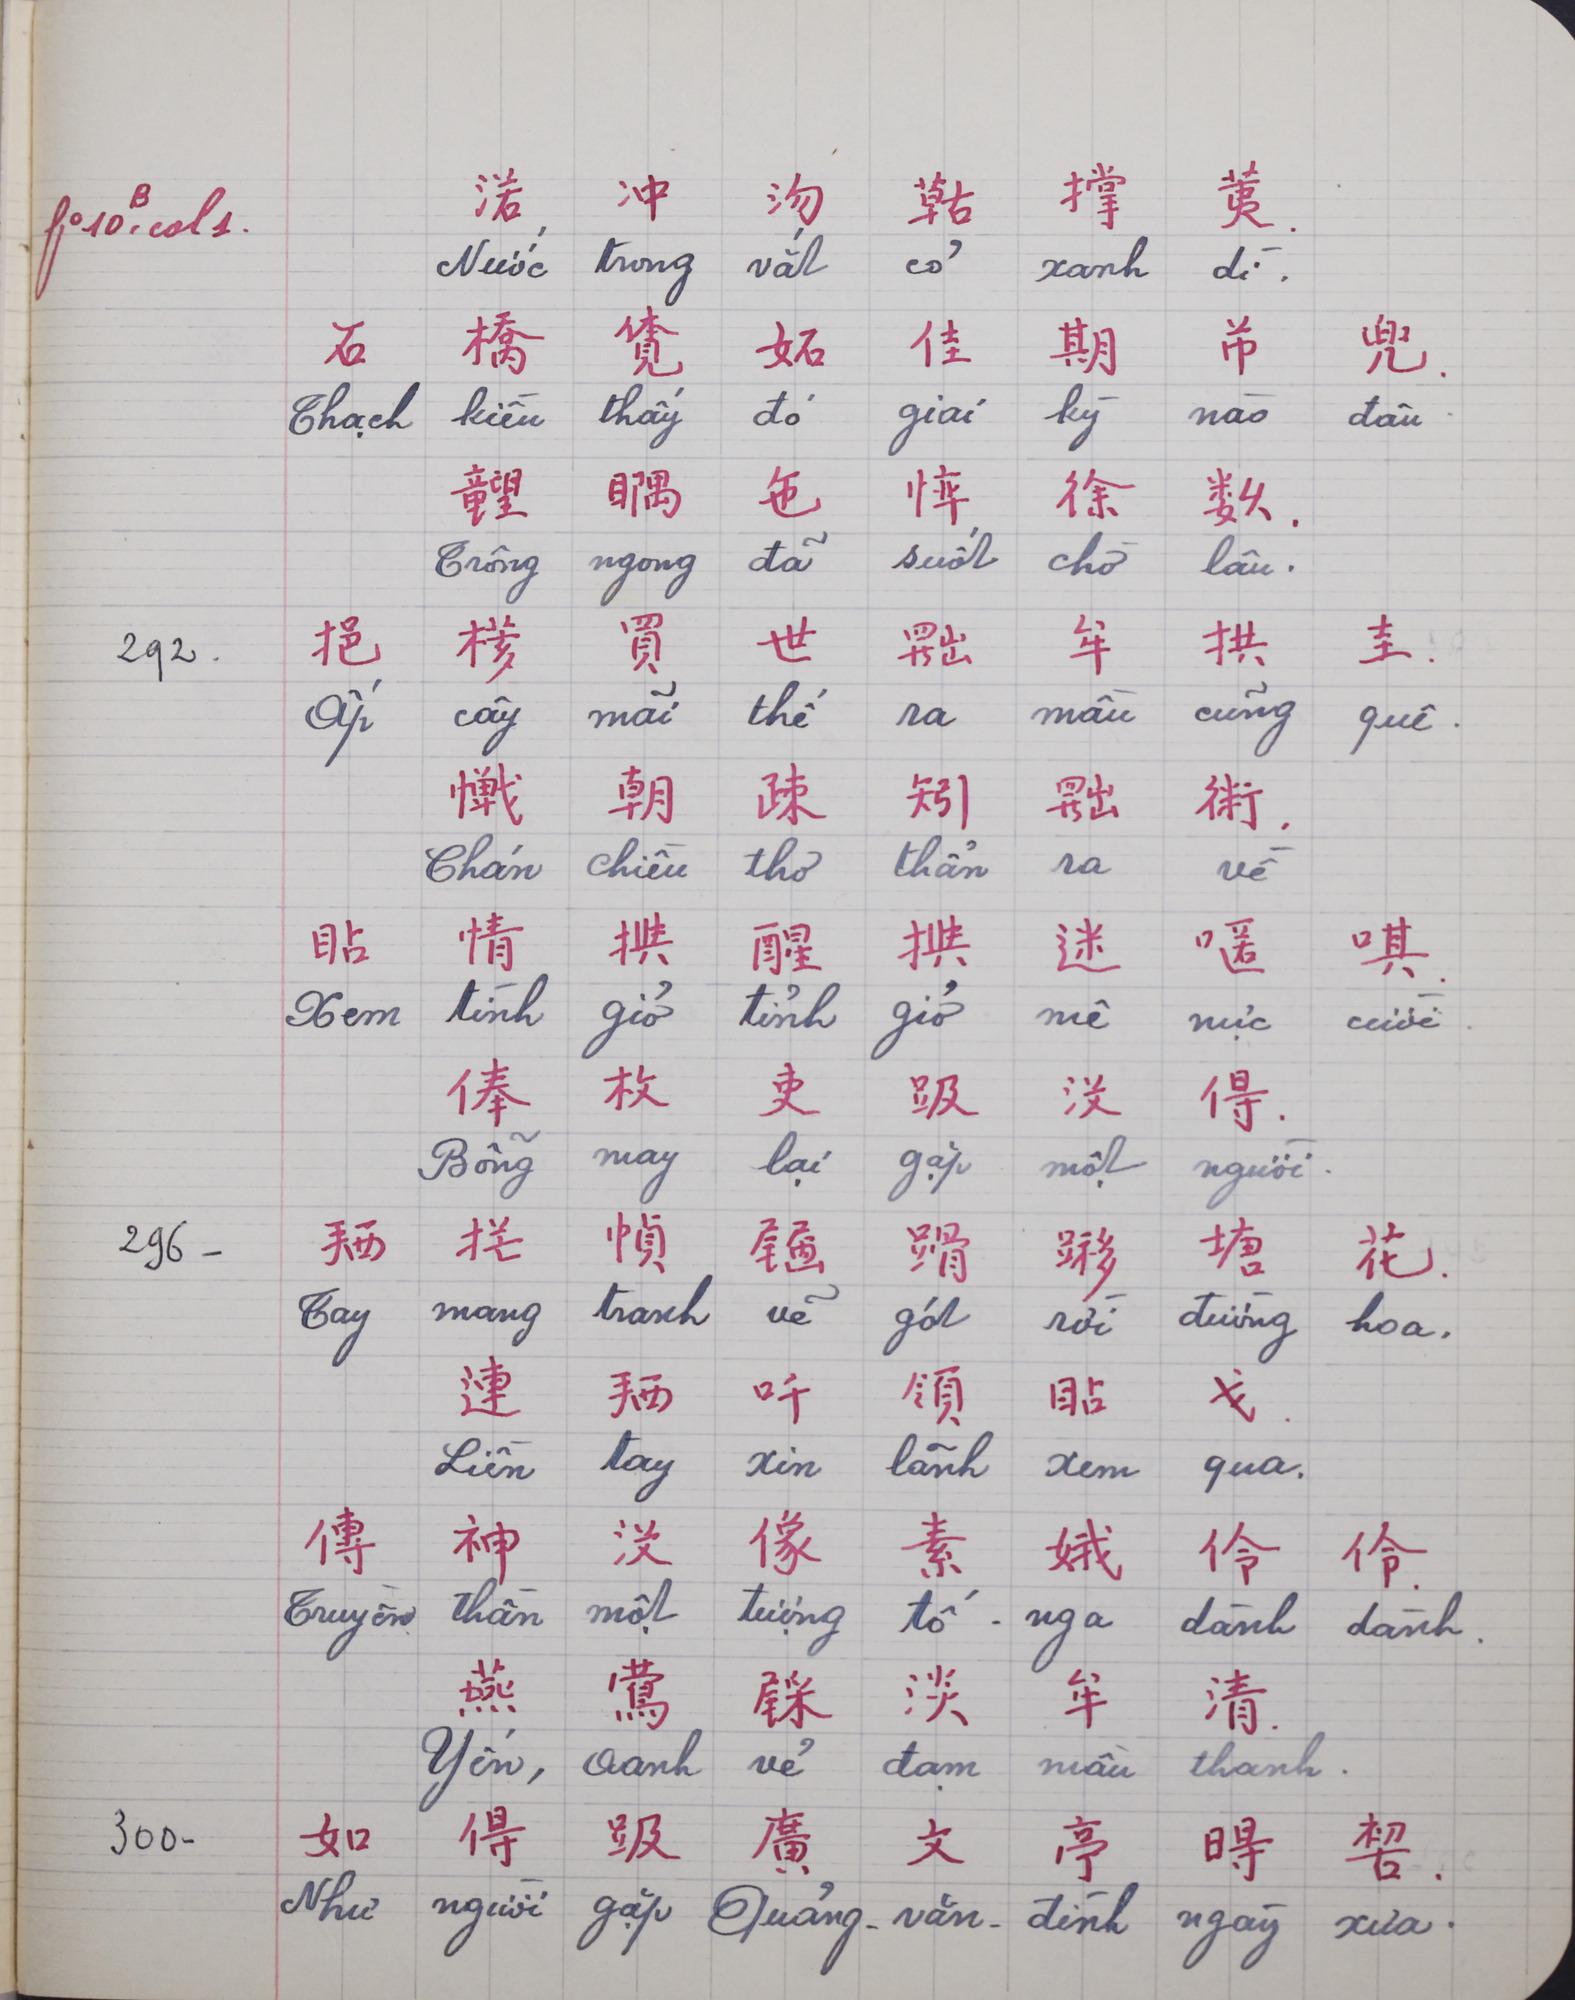 fo 10 B. col 1.
渃 冲 沕 𦹵 撑 荑.
Nước trong vắt cỏ xanh dì.
石 橋 覓 妬 佳 期 芇 兜.
Thạch kiều thấy đó giai kỳ nào đâu
𥊣 喁 㐌 焠 徐 数.
Trông ngong đã suốt chờ lâu.
292. 挹 核 買 世 𠚢 牟 拱 圭.
Ấp cây mãi thế ra mầu cũng quê.
朝 疎 矧 𠚢 術.
Chán chiều thơ thẩn ra về
貼 情 醒 迷 㗂 唭.
Xem tình giở tỉnh giở mê nực cười.
俸 枚 吏 趿 沒 得.
Bỗng may lại gặp một người.
296 - 𢬣 㧅 幀 𦘧 𨃴 𨇒 塘 花.
Tay mang tranh vẽ gót rời đường hoa.
連 𢬣 吀 領 貼 戈.
Liền tay xin lãnh xem qua.
傳 神 沒 像 素 娥 伶 伶.
Truyền thần một tượng tố - nga dành dành.
燕 鶯 淡 牟 清.
Yến, oanh vẻ đạm mầu thanh.
300- 如 得 趿 廣 文 亭 㫷 𠸗.
Như người gặp Quảng - văn - đình ngày xưa.